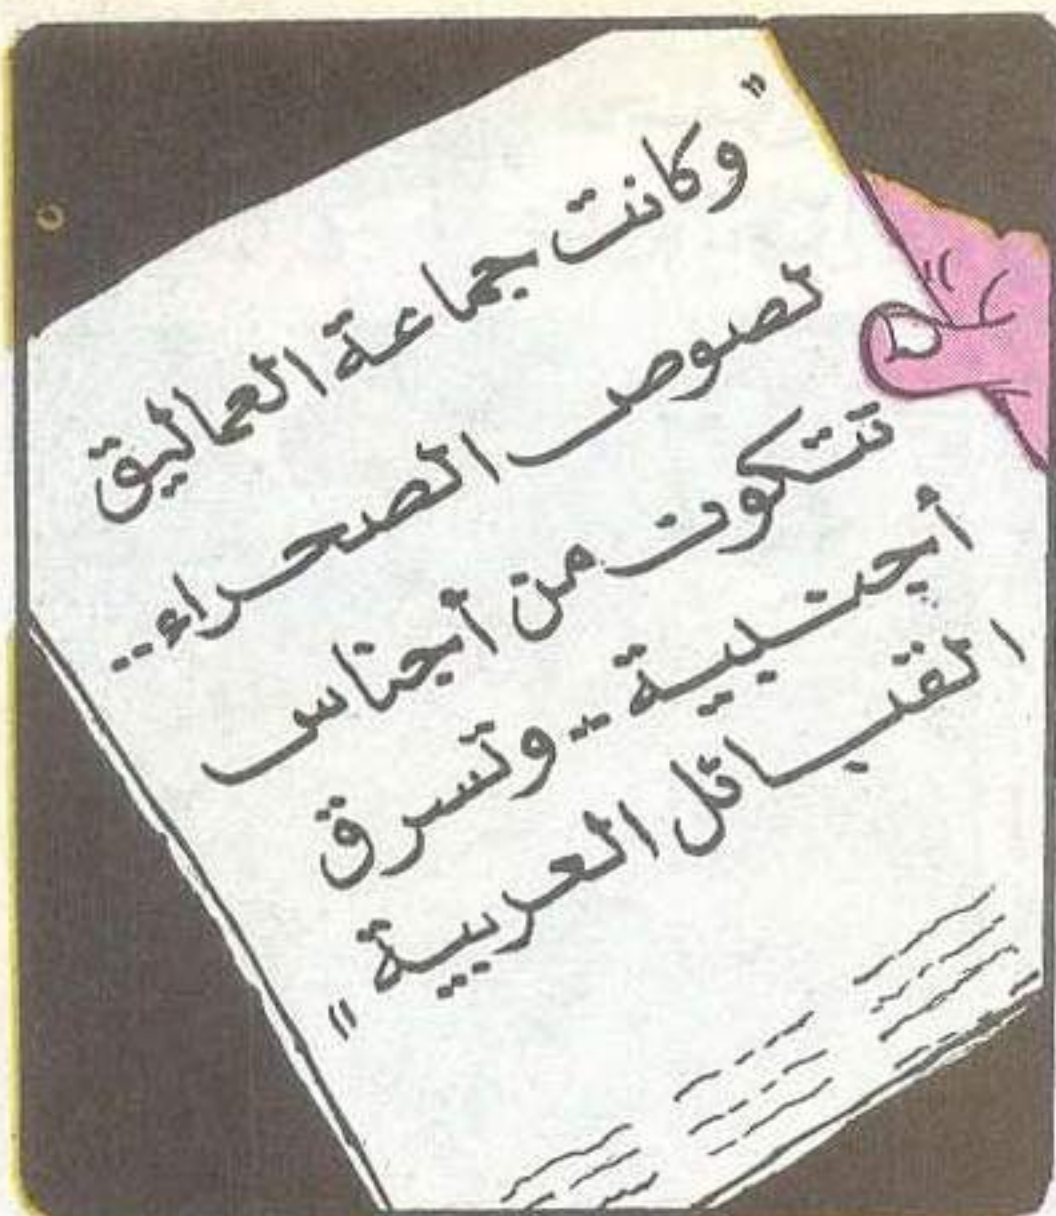 "وكانت جماعة العماليق
لصوص الصحراء..
تتكون من أجناس
أجنبية.. وتسرق
القبائل العربية"